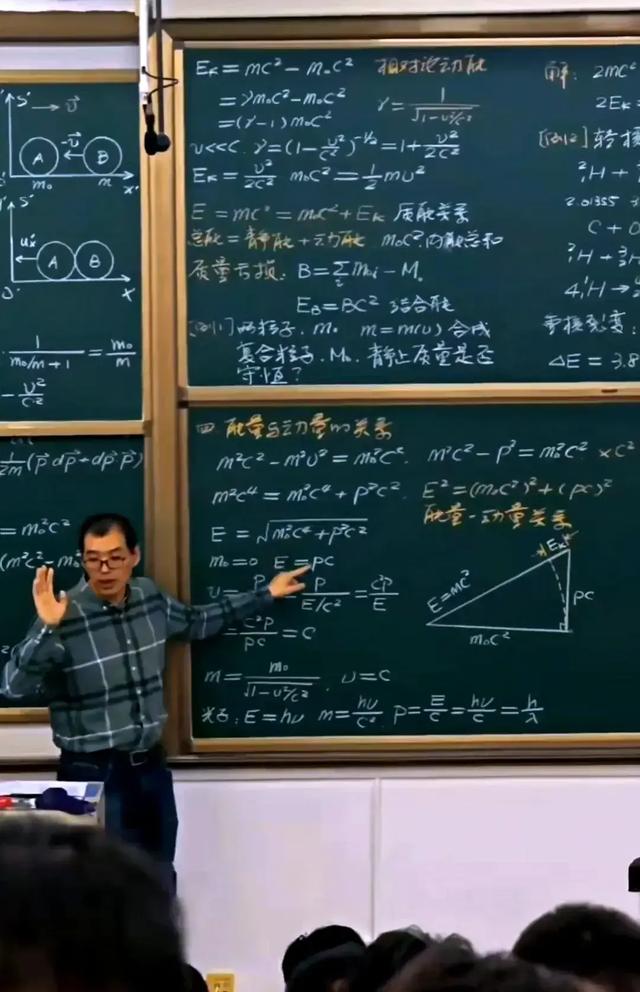 S'
→ υ⃗
A
-υ⃗
B
m₀
m
x'
S'
uₓ'
A
B
x
1/(m₀/m+1) = m₀/m
- υ²/c²
1/2m (p⃗·dp⃗+dp⃗·p⃗)
= m₀²c²
(m²c²-m₀
Eₖ = mc² - m₀c² 相对论动能
= γm₀c² - m₀c² γ = 1/√(1-υ²/c²)
= (γ-1)m₀c²
υ<<c. γ = (1-υ²/c²)^(-1/2) = 1+υ²/2c²
Eₖ = υ²/2c² m₀c² = 1/2 mυ²
E = mc² = m₀c² + Eₖ 质能关系
总能 = 静能 + 动能 m₀c²内能总和
质量亏损: B = Σᵢ m₀ᵢ - M₀
E_B = BC² 结合能
[例1] 两粒子. m₀ m = m(υ) 合成
复合粒子. M₀. 静止质量是否
守恒?
解: 2mc²
2Eₖ
[例2] 轻核
²₁H +
2.01355
C + O
²₁H + ³₁H
4¹₁H →
重核裂变:
ΔE = 3.8
四. 能量与动量的关系
m²c² - m²υ² = m₀²c² m²c² - p² = m₀²c² ×c²
m²c⁴ = m₀²c⁴ + p²c². E² = (m₀c²)² + (pc)²
能量-动量关系
E = √(m₀²c⁴+p²c²)
m₀=0 E = pc
υ = p = p/(E/c²) = c²p/E
= c²p/pc = c
m = m₀/√(1-υ²/c²). υ = c
光子: E = hν m = hν/c² p = E/c = hν/c = h/λ
Eₖ
E = mc²
pc
m₀c²